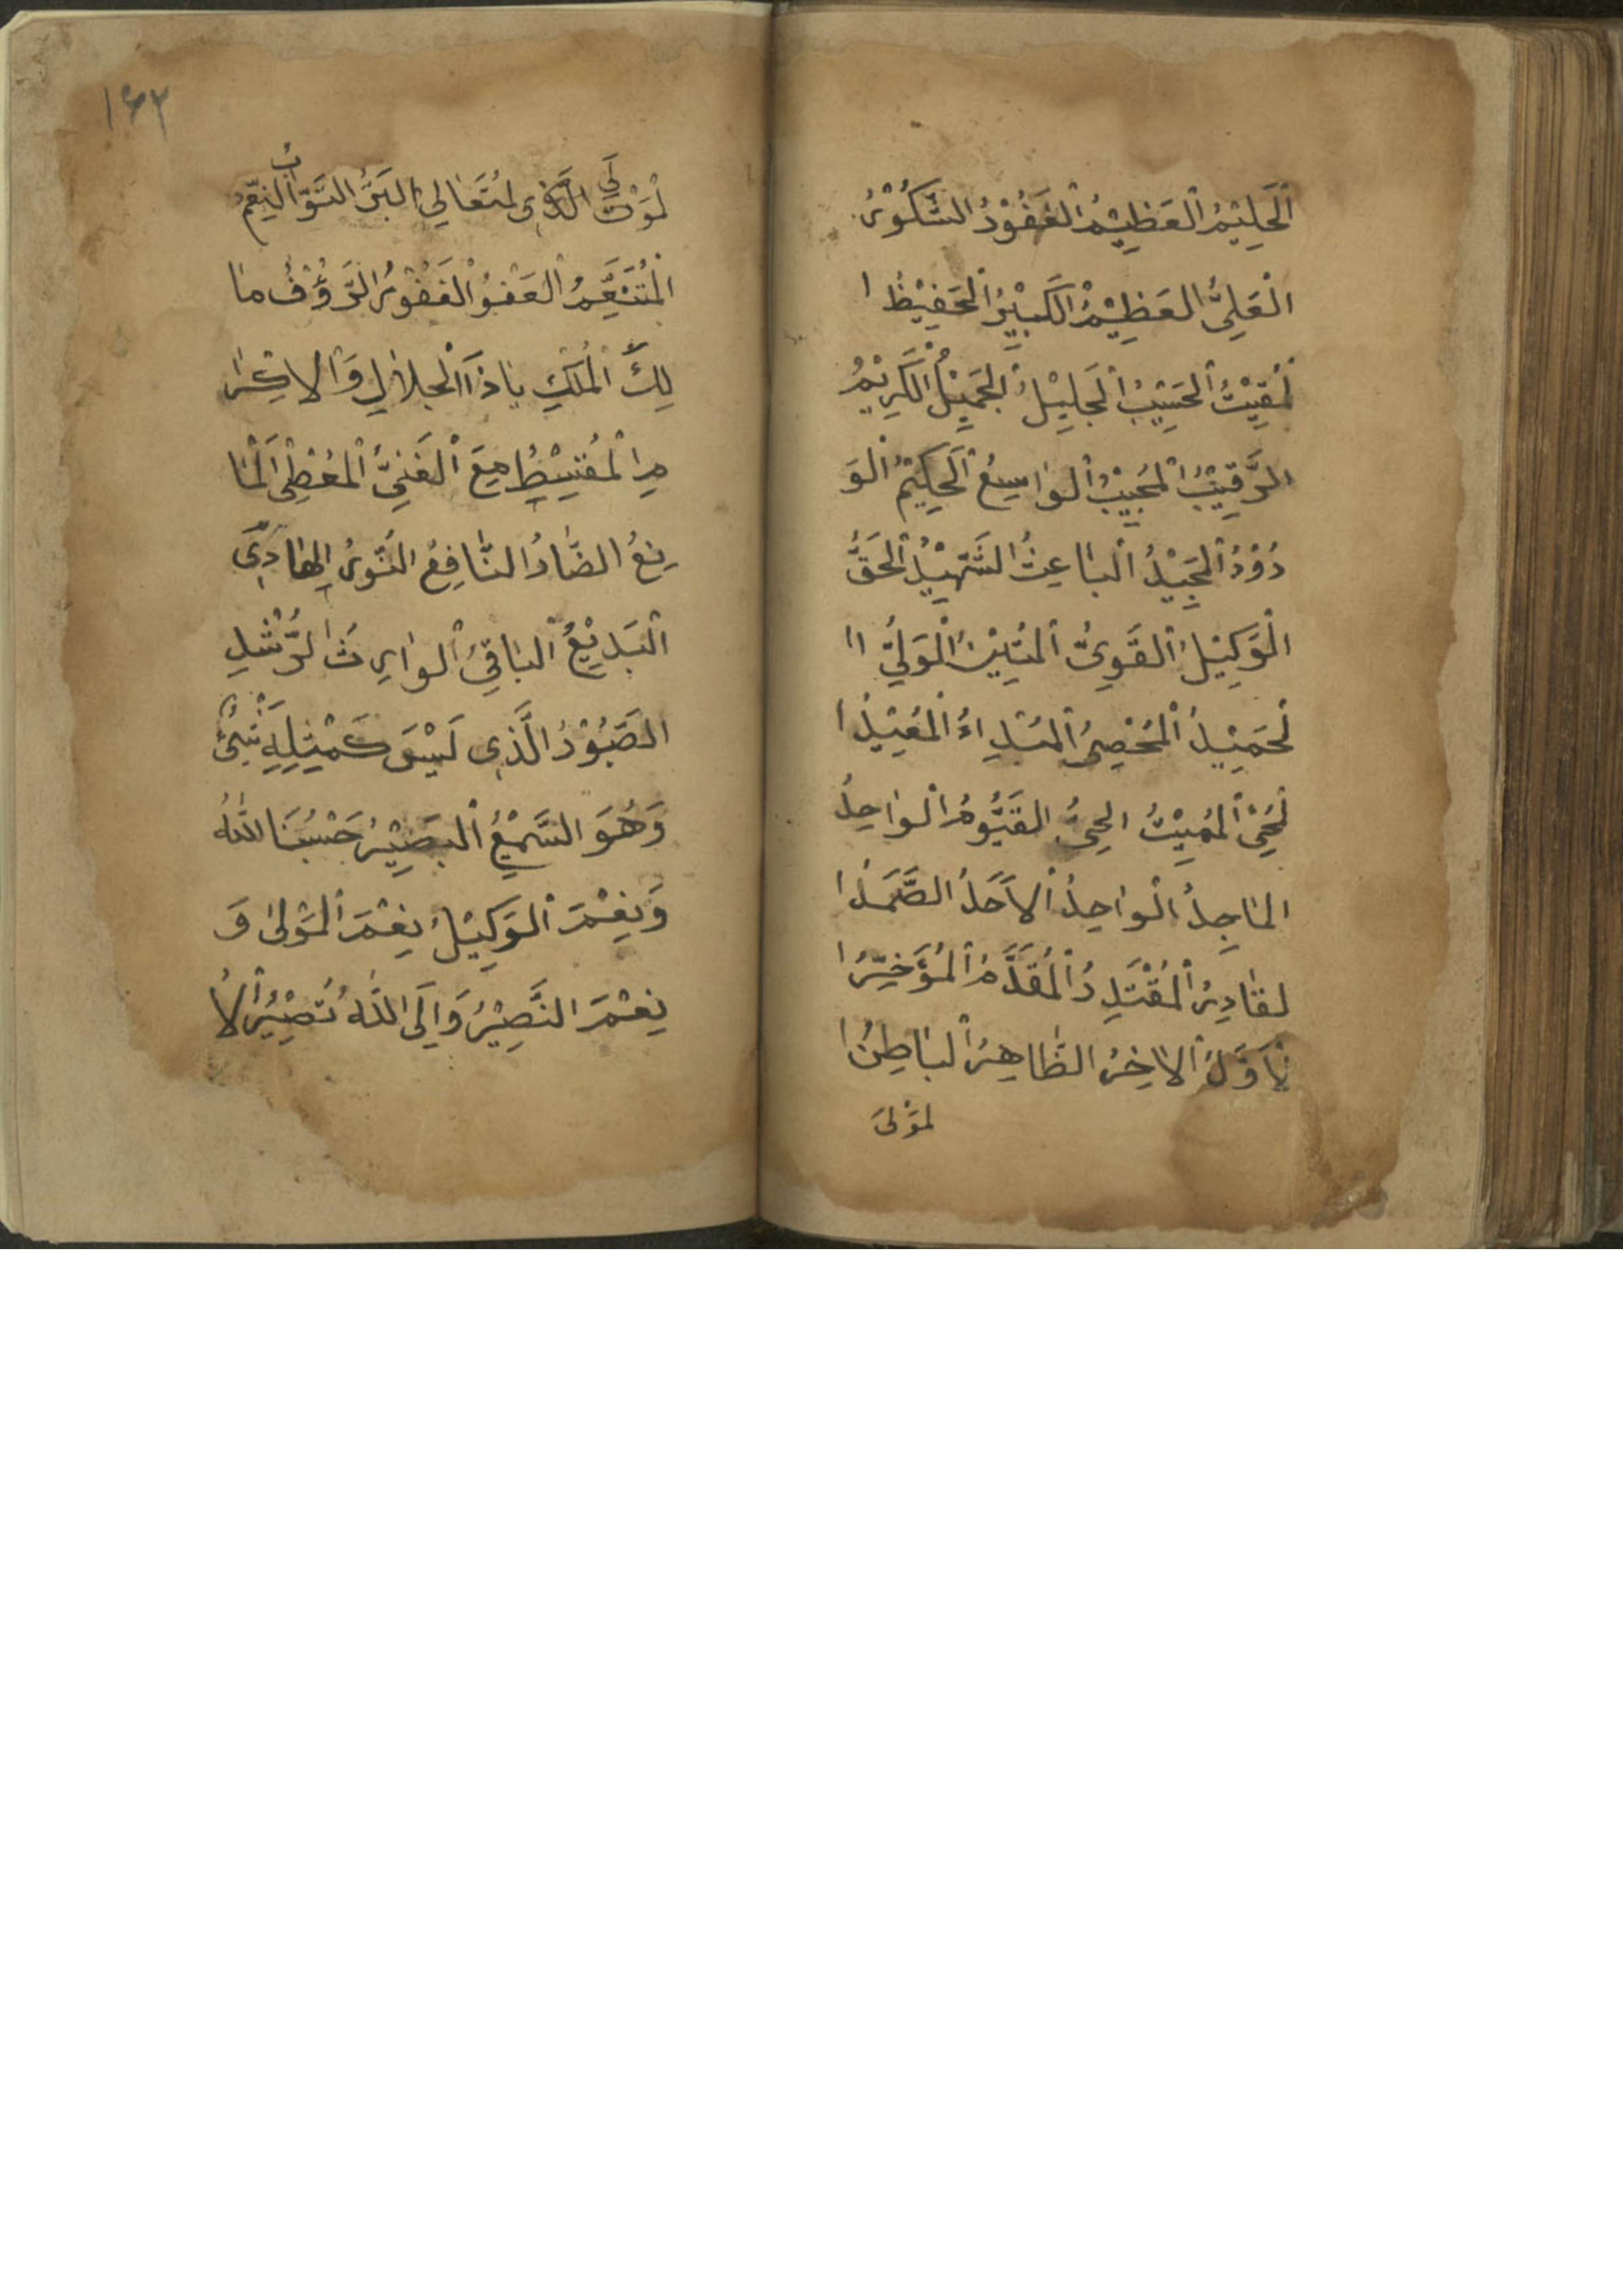 اَلْحَلِيْمُ الْعَظِيْمُ الْغَفُوْرُ الشَّكُوْرُ
الْعَلِيُّ الْعَظِيْمُ الْكَبِيْرُ الْحَفِيْظُ ا
لْمُقِيْتُ الْحَسِيْبُ الْجَلِيْلُ الْجَمِيْلُ الْكَرِيْمُ
الرَّقِيْبُ الْمُجِيْبُ الْوَاسِعُ الْحَكِيْمُ الْوَ
دُوْدُ الْمَجِيْدُ الْبَاعِثُ الشَّهِيْدُ الْحَقُّ
الْوَكِيْلُ الْقَوِيُّ الْمَتِيْنُ الْوَلِيُّ اا
لْحَمِيْدُ الْمُحْصِيُ الْمُبْدِاءُ الْمُعِيْدُ ا
لْمُحْيِ الْمُمِيْتُ الْحَيُّ الْقَيُّوْمُ الْوَاجِدُ
الْمَاجِدُ الْوَاحِدُ الْاَحَدُ الصَّمَدُ ا
لْقَادِرُ الْمُقْتَدِرُ الْمُقَدَّمُ الْمُؤَخِّرُ ا
لْاَوَّلُ الْاٰخِرُ الظَّاهِرُ الْبَاطِنُ ا
لْمَوْلَى
١٦٢
الْمُتَعَالِي الْبَرُّ التَّوَّابُ
الْمُتَنَعِّمُ الْعَفُوُّ الْغَفُوْرُ الرَّؤُفُ مَا
لِكُ الْمُلْكِ يَا ذَا الْجَلَالِ وَالْاِكْرَا
مِ الْمُقْسِطُ جَمِعَ الْغَنِيُّ الْمُعْطِى الْمَا
نِعُ الضَّارُ النَّافِعُ النُّوْرُ الْهَادِى
الْبَدِيْعُ الْبَاقِيُ الْوَارِثُ الرُّشْدِ
الصَّبُوْرُ الَّذِى لَيْسَ كَمِثْلِهِ شَيْءٌ
وَهُوَ السَّمِيْعُ الْبَصِيْرُ حَسْبُنَا اللّٰهُ
وَنِعْمَ الْوَكِيْلُ نِعْمَ الْمَوْلَى وَ
نِعْمَ النَّصِيْرُ وَاِلَى اللّٰهِ تُصِيْرُ الْاُ